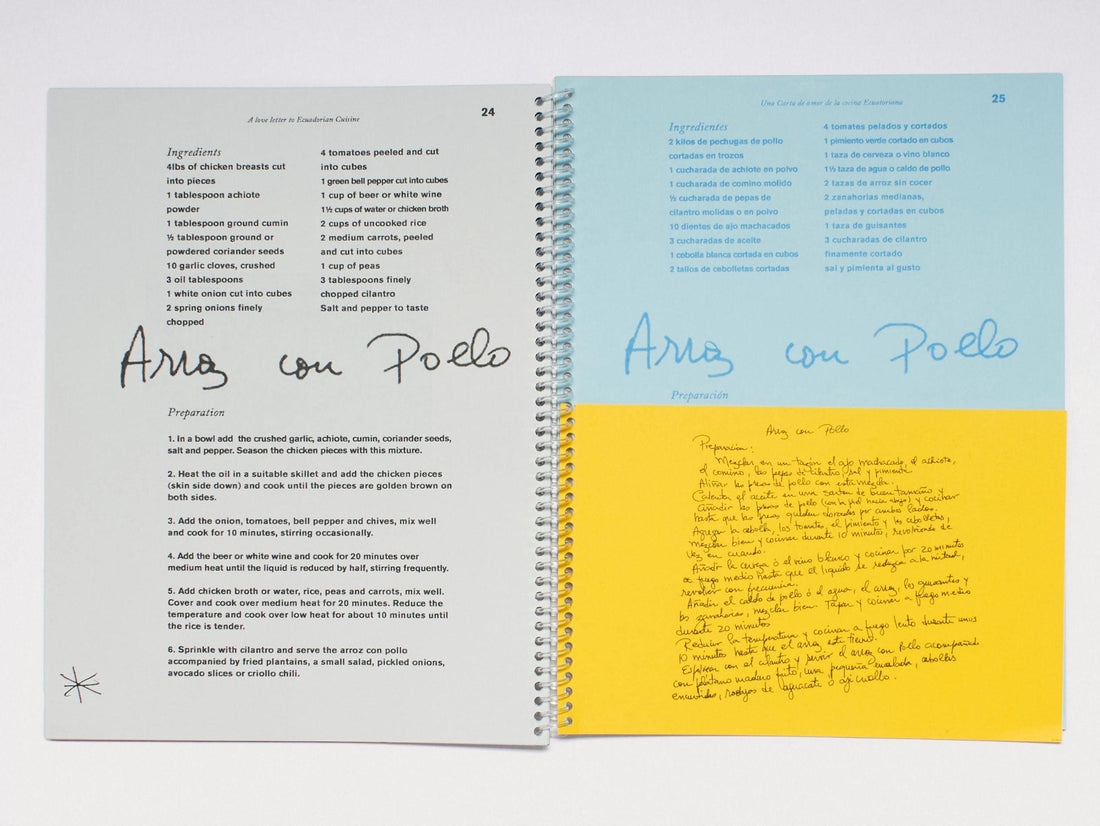 24
A love letter to Ecuadorian Cuisine
Ingredients
4lbs of chicken breasts cut
into pieces
1 tablespoon achiote
powder
1 tablespoon ground cumin
½ tablespoon ground or
powdered coriander seeds
10 garlic cloves, crushed
3 oil tablespoons
1 white onion cut into cubes
2 spring onions finely
chopped
4 tomatoes peeled and cut
into cubes
1 green bell pepper cut into cubes
1 cup of beer or white wine
1½ cups of water or chicken broth
2 cups of uncooked rice
2 medium carrots, peeled
and cut into cubes
1 cup of peas
3 tablespoons finely
chopped cilantro
Salt and pepper to taste
Arroz con Pollo
Preparation
1. In a bowl add the crushed garlic, achiote, cumin, coriander seeds,
salt and pepper. Season the chicken pieces with this mixture.
2. Heat the oil in a suitable skillet and add the chicken pieces
(skin side down) and cook until the pieces are golden brown on
both sides.
3. Add the onion, tomatoes, bell pepper and chives, mix well
and cook for 10 minutes, stirring occasionally.
4. Add the beer or white wine and cook for 20 minutes over
medium heat until the liquid is reduced by half, stirring frequently.
5. Add chicken broth or water, rice, peas and carrots, mix well.
Cover and cook over medium heat for 20 minutes. Reduce the
temperature and cook over low heat for about 10 minutes until
the rice is tender.
6. Sprinkle with cilantro and serve the arroz con pollo
accompanied by fried plantains, a small salad, pickled onions,
avocado slices or criollo chili.
Una Carta de amor de la cocina Ecuatoriana
25
Ingredientes
2 kilos de pechugas de pollo
cortadas en trozos
1 cucharada de achiote en polvo
1 cucharada de comino molido
½ cucharada de pepas de
cilantro molidas o en polvo
10 dientes de ajo machacados
3 cucharadas de aceite
1 cebolla blanca cortada en cubos
2 tallos de cebolletas cortadas
4 tomates pelados y cortados
1 pimiento verde cortado en cubos
1 taza de cerveza o vino blanco
1½ taza de agua o caldo de pollo
2 tazas de arroz sin cocer
2 zanahorias medianas,
peladas y cortadas en cubos
1 taza de guisantes
3 cucharadas de cilantro
finamente cortado
sal y pimienta al gusto
Arroz con Pollo
Preparación
Arroz con Pollo
Preparación:
Mezclar en un tazón el ajo machacado, el achiote,
el comino, las pepas de cilantro, sal y pimienta.
Aliñar las presas de pollo con esta mezcla.
Calentar el aceite en una sartén de buen tamaño y
añadir las presas de pollo (con la piel hacia abajo) y cocinar
hasta que las presas queden doradas por ambos lados.
Agregar la cebolla, los tomates, el pimiento y las cebolletas,
mezclar bien y cocinar durante 10 minutos, revolviendo de
vez en cuando.
Añadir la cerveza ó el vino blanco y cocinar por 20 minutos
a fuego medio hasta que el líquido se reduzca a la mitad,
revolver con frecuencia.
Añadir el caldo de pollo ó el agua, el arroz, los guisantes y
las zanahorias, mezclar bien. Tapar y cocinar a fuego medio
durante 20 minutos
Reducir la temperatura y cocinar a fuego lento durante unos
10 minutos hasta que el arroz esté tierno.
Esparcir con el cilantro y servir el arroz con pollo acompañado
con plátano maduro frito, una pequeña ensalada, cebollas
encurtidas, rodajas de aguacate ó ají criollo.